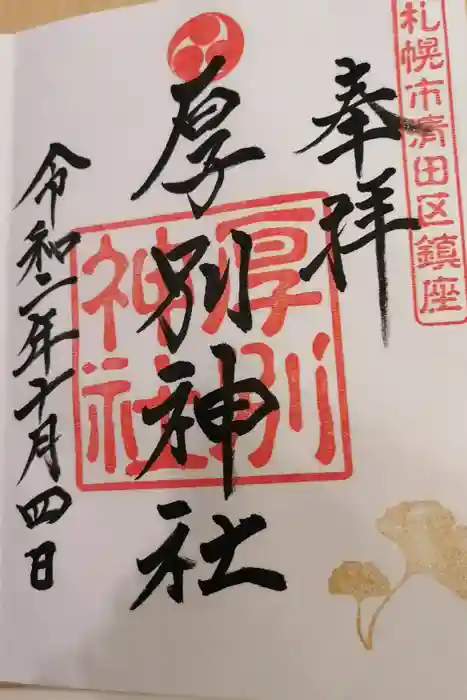 札幌市清田区鎮座
奉拝
厚別神社
厚別
神社
令和二年十月四日